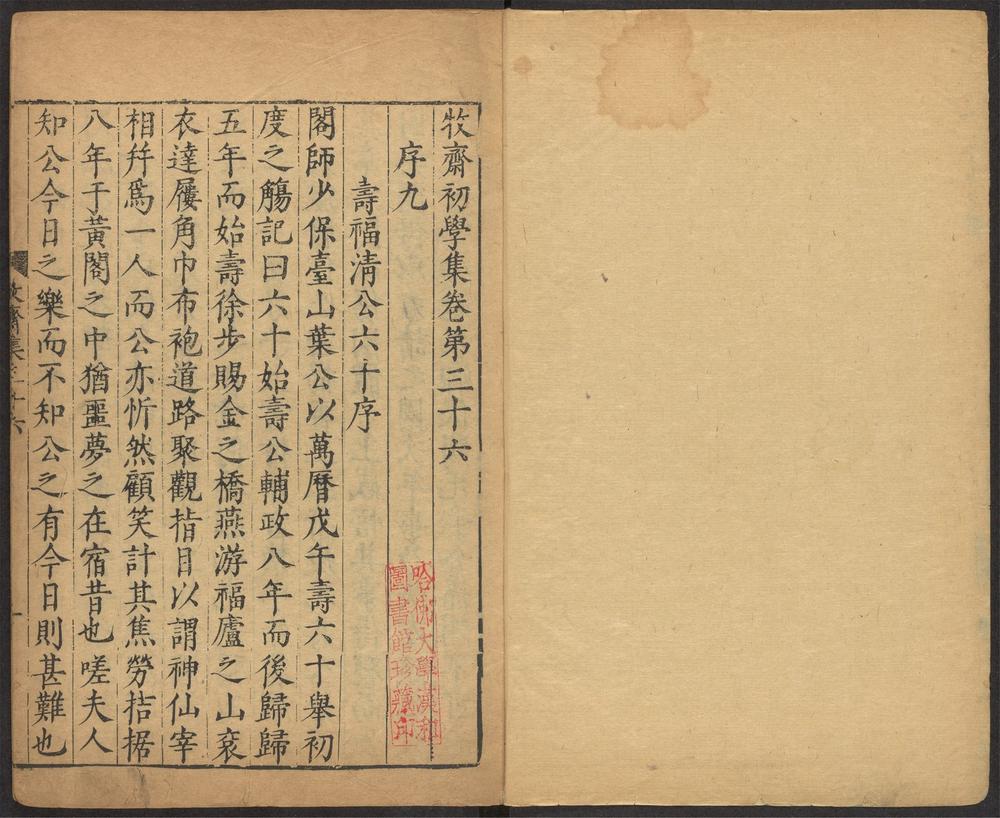 牧齋初學集卷第三十六
序九
壽福清公六十序
閣師少保臺山葉公以萬曆戊午壽六十舉初
度之觴記曰六十始壽公輔政八年而後歸歸
五年而始壽徐步賜金之橋燕游福廬之山袞
衣達屨角巾布袍道路聚觀指目以謂神仙宰
相幷爲一人而公亦忻然顧笑計其焦勞拮据
八年于黃閣之中猶噩夢之在宿昔也嗟夫人
知公今日之樂而不知公之有今日則甚難也
牧齋集卷三十六
一
哈佛大學漢和
圖書館珍藏印